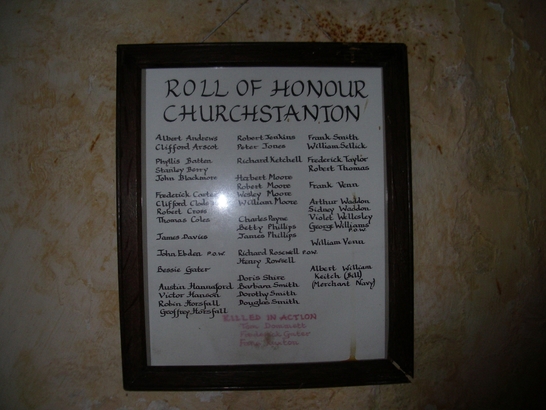 ROLL OF HONOUR
CHURCHSTANTON
Albert Andrews
Clifford Arscot
Phyllis Batten
Stanley Berry
John Blackmore
Frederick
Clifford
Robert Cross
Thomas Coles
James Davies
John Ebdon P.O.W.
Bessie Gater
Austin Hannaford
Victor Hanson
Robin Horsfall
Geoffrey Horsfall
Robert Jenkins
Peter Jones
Richard Ketchell
Herbert Moore
Robert Moore
Wesley Moore
William Moore
Charles Payne
Betty Phillips
James Phillips
Richard Rosewell P.O.W.
Henry Rowsell
Doris Shire
Barbara Smith
Dorothy Smith
Douglas Smith
Frank Smith
William Sellick
Frederick Taylor
Robert Thomas
Frank Venn
Arthur Waddon
Sidney Waddon
Violet Wellesley
George Williams
P.O.W.
William Venn
Albert William
Keitch (Bill)
(Merchant Navy)
KILLED IN ACTION
Tom
Gater